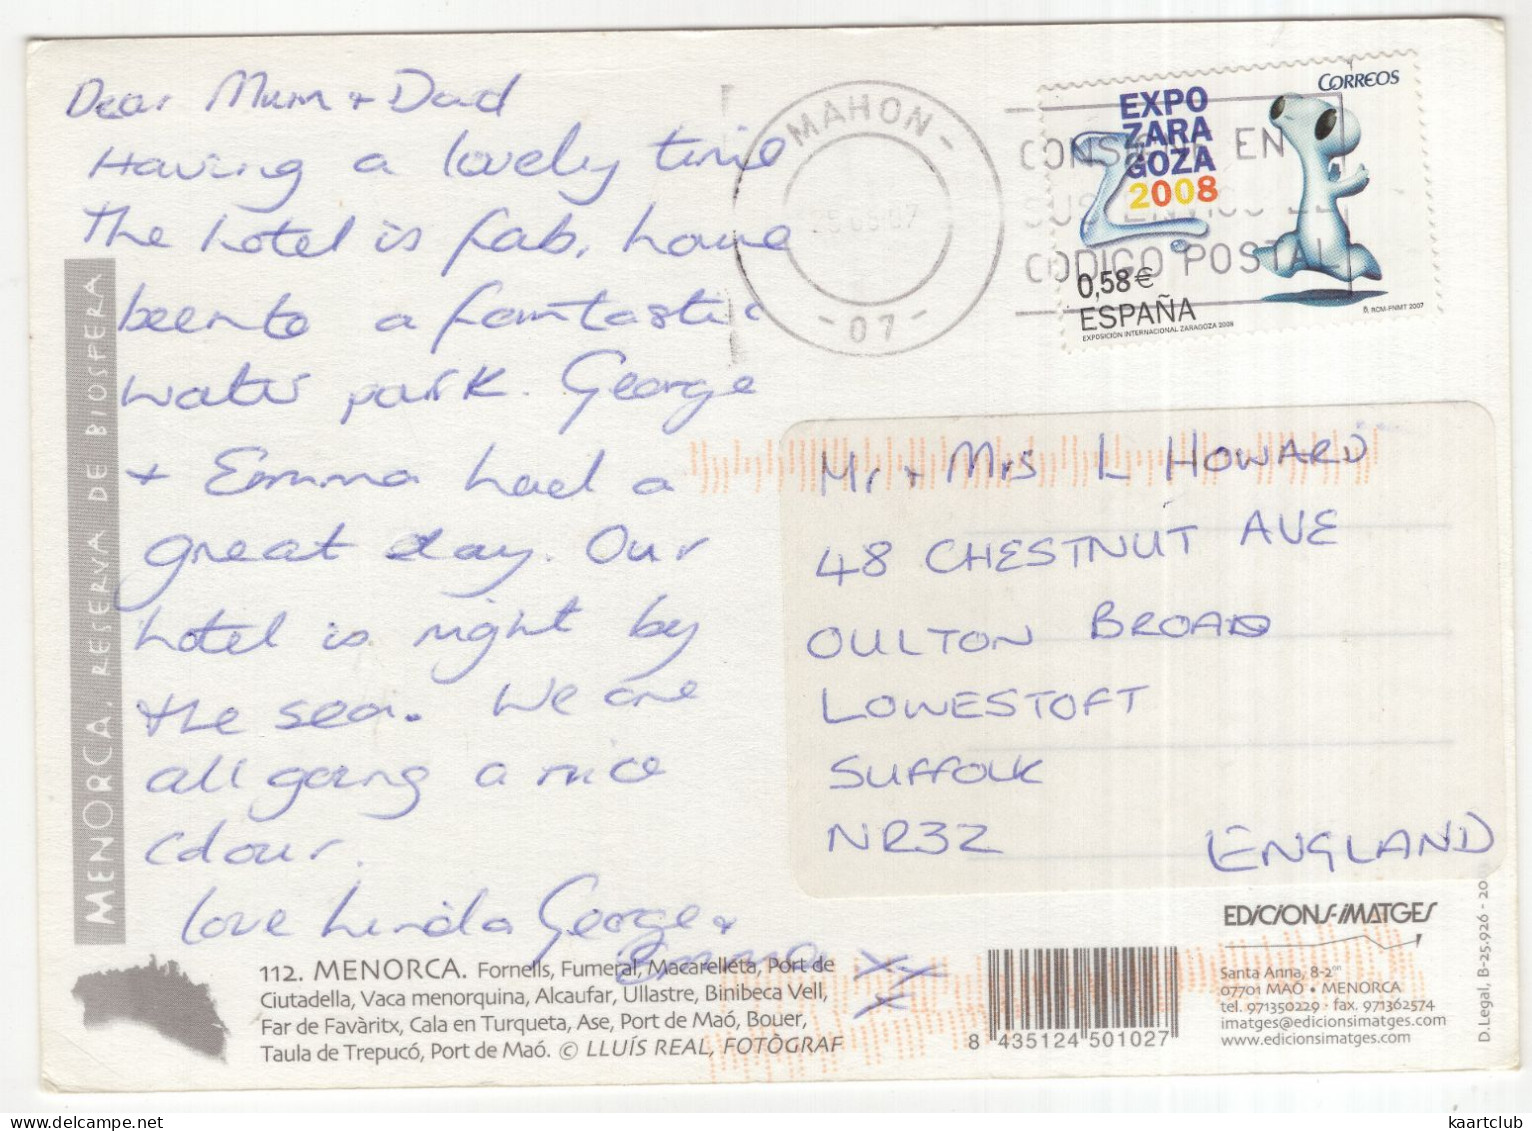 Dear Mum + Dad
Having a lovely time
The hotel is fab, have
been to a fantastic
water park. George
+ Emma had a
great day. Our
hotel is right by
the sea. We are
all going a nice
colour.
Love Linda George +
Emma
MENORCA. RESERVA DE BIOSFERA
112. MENORCA. Fornells, Fumeral, Macarelleta, Port de
Ciutadella, Vaca menorquina, Alcaufar, Ullastre, Binibeca Vell,
Far de Favàritx, Cala en Turqueta, Ase, Port de Maó, Bouer,
Taula de Trepucó, Port de Maó. © LLUÍS REAL, FOTÒGRAF
MAHON
- 07 -
CONSULTE EN
SUS ENVIOS EL
CODIGO POSTAL
CORREOS
EXPO
ZARA
GOZA
2008
0,58€
ESPAÑA
EXPOSICIÓN INTERNACIONAL ZARAGOZA 2008
RCM-FNMT 2007
Mr + Mrs L HOWARD
48 CHESTNUT AVE
OULTON BROAD
LOWESTOFT
SUFFOLK
NR32
ENGLAND
8 435124 501027
EDICIONS-IMATGES
Santa Anna, 8-2on
07701 MAÓ • MENORCA
tel. 971350229 · fax. 971362574
imatges@edicionsimatges.com
www.edicionsimatges.com
D.Legal, B-25.926 -
kaartclub